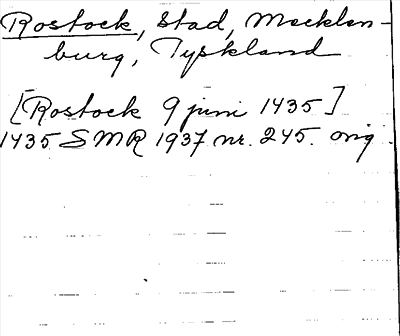 Rostock, Stad, Mecklen-
burg, Tyskland
[Rostock 9 juni 1435]
1435 SMR 1937 nr. 245. orig.